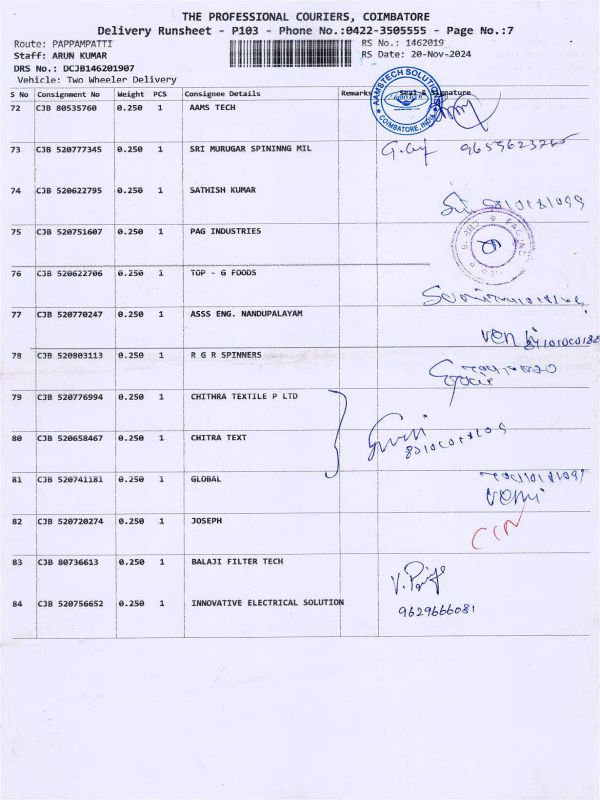 THE PROFESSIONAL COURIERS, COIMBATORE
Delivery Runsheet - P103 - Phone No.:0422-3505555 - Page No.:7
Route: PAPPAMPATTI RS No.: 1462019
Staff: ARUN KUMAR RS Date: 20-Nov-2024
DRS No.: DCJB146201907
Vehicle: Two Wheeler Delivery
S No Consignment No Weight PCS Consignee Details Remarks Seal & Signature
72 CJB 80535760 0.250 1 AAMS TECH
AAMSTECH SOLUTIONS COIMBATORE, INDIA
73 CJB 520777345 0.250 1 SRI MURUGAR SPININNG MIL
74 CJB 520622795 0.250 1 SATHISH KUMAR
75 CJB 520751607 0.250 1 PAG INDUSTRIES
76 CJB 520622706 0.250 1 TOP - G FOODS
77 CJB 520770247 0.250 1 ASSS ENG. NANDUPALAYAM
78 CJB 520803113 0.250 1 R G R SPINNERS
79 CJB 520776994 0.250 1 CHITHRA TEXTILE P LTD
80 CJB 520658467 0.250 1 CHITRA TEXT
81 CJB 520741181 0.250 1 GLOBAL
82 CJB 520720274 0.250 1 JOSEPH
83 CJB 80736613 0.250 1 BALAJI FILTER TECH
84 CJB 520756652 0.250 1 INNOVATIVE ELECTRICAL SOLUTION
9629666081